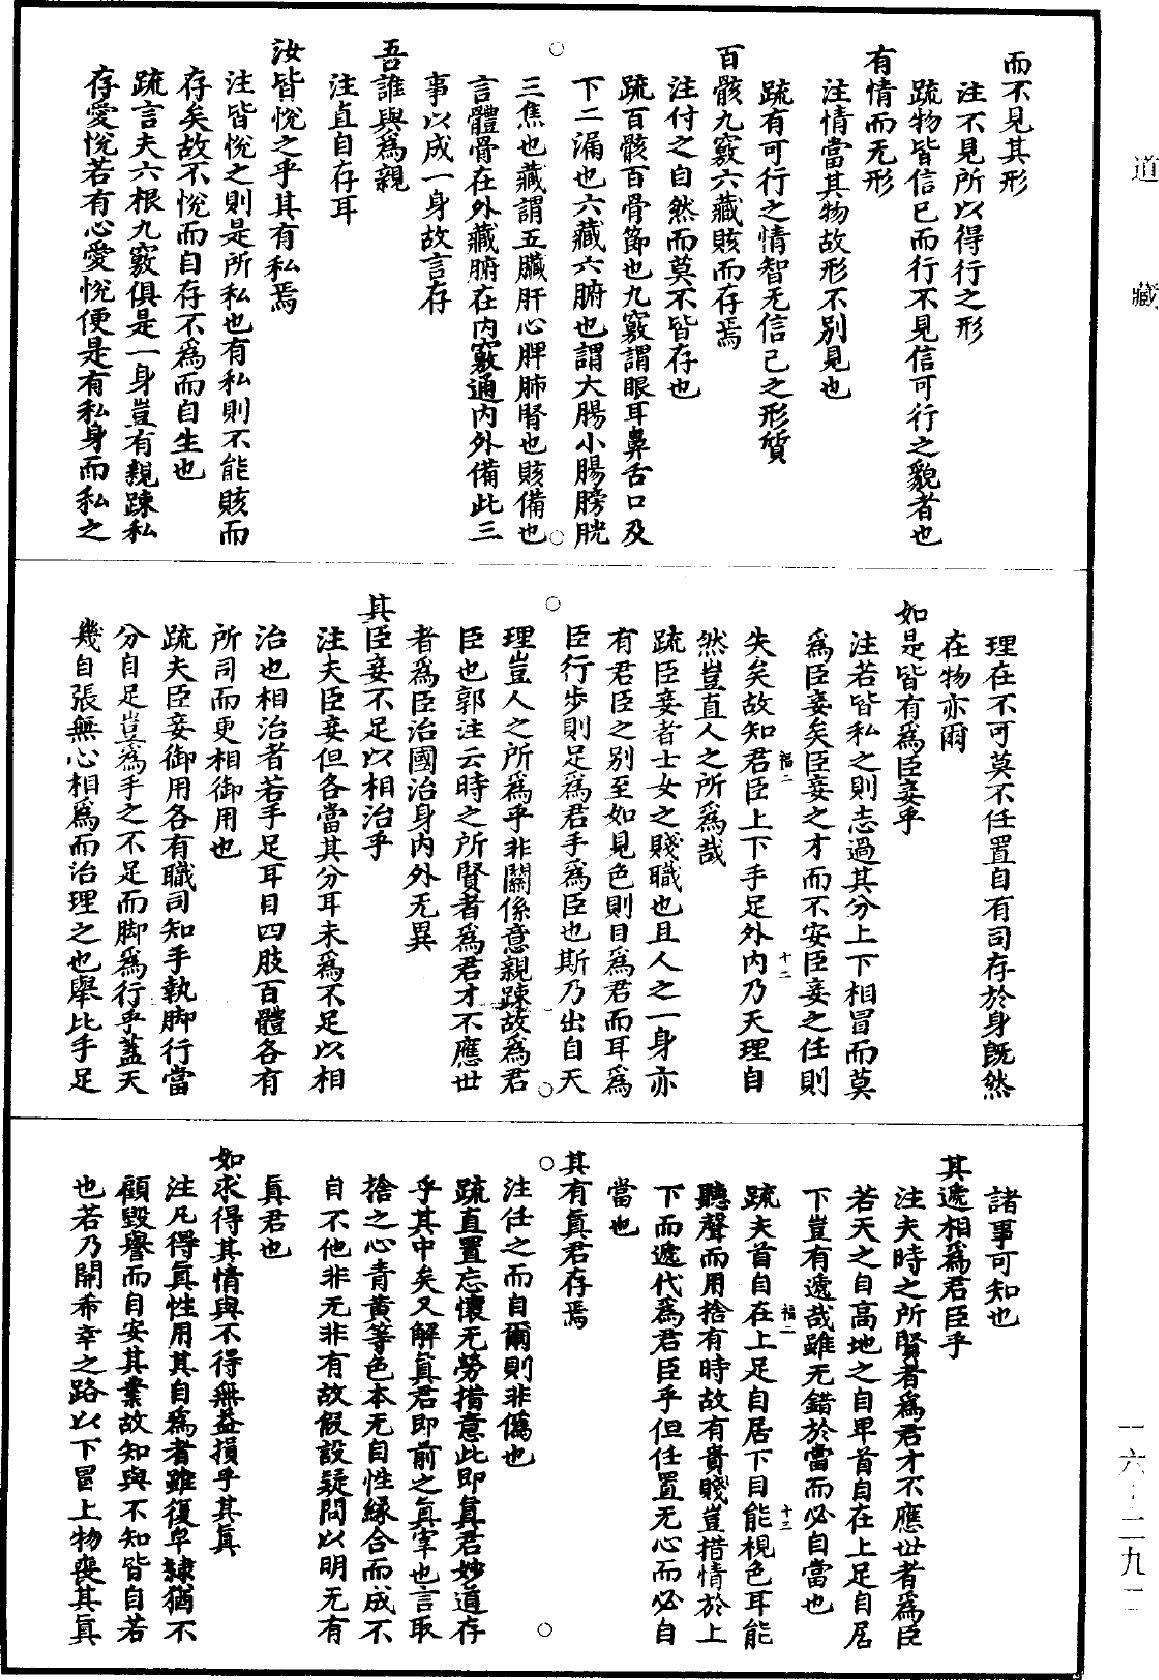 道藏
而不見其形
注不見所以得行之形
疏物皆信已而行不見信可行之貌者也
有情而无形
注情當其物故形不別見也
疏有可行之情智无信己之形質
百骸九竅六藏賅而存焉
注付之自然而莫不皆存也
疏百骸百骨節也九竅謂眼耳鼻舌口及
下二漏也六藏六腑也謂大腸小腸膀胱
三焦也藏謂五臟肝心脾肺腎也賅備也
言體骨在外藏腑在内竅通内外備此三
事以成一身故言存
吾誰與為親
注直自存耳
汝皆悅之乎其有私焉
注皆悅之則是所私也有私則不能賅而
存矣故不悅而自存不為而自生也
疏言夫六根九竅俱是一身豈有親踈私
存愛悅若有心愛悅便是有私身而私之
理在不可莫不任置自有司存於身既然
在物亦爾
如是皆有為臣妾乎
注若皆私之則志過其分上下相冒而莫
為臣妾矣臣妾之才而不安臣妾之任則
失矣故知君臣上下手足外内乃天理自
福二 十二
然豈直人之所為哉
疏臣妾者士女之賤職也且人之一身亦
有君臣之別至如見色則目為君而耳為
臣行步則足為君手為臣也斯乃出自天
理豈人之所為乎非關係意親踈故為君
臣也郭注云時之所賢者為君才不應世
者為臣治國治身内外无異
其臣妾不足以相治乎
注夫臣妾但各當其分耳未為不足以相
治也相治者若手足耳目四肢百體各有
所司而更相御用也
疏夫臣妾御用各有職司知手執脚行當
分自足豈為手之不足而脚為行乎蓋天
幾自張無心相為而治理之也舉比手足
諸事可知也
其遞相為君臣乎
注夫時之所賢者為君才不應世者為臣
若天之自高地之自卑首自在上足自居
下豈有遞哉雖无錯於當而必自當也
福二 十三
疏夫首自在上足自居下目能視色耳能
聽聲而用捨有時故有貴賤豈措情於上
下而遞代為君臣乎但任置无心而必自
當也
其有真君存焉
注任之而自爾則非偽也
疏直置忘懷无勞措意此即真君妙道存
乎其中矣又解真君即前之真宰也言取
捨之心青黃等色本无自性緣合而成不
自不他非无非有故假設疑問以明无有
真君也
如求得其情與不得無益損乎其真
注凡得真性用其自為者雖復皁隸猶不
顧毀譽而自安其業故知與不知皆自若
也若乃開希幸之路以下冒上物喪其真